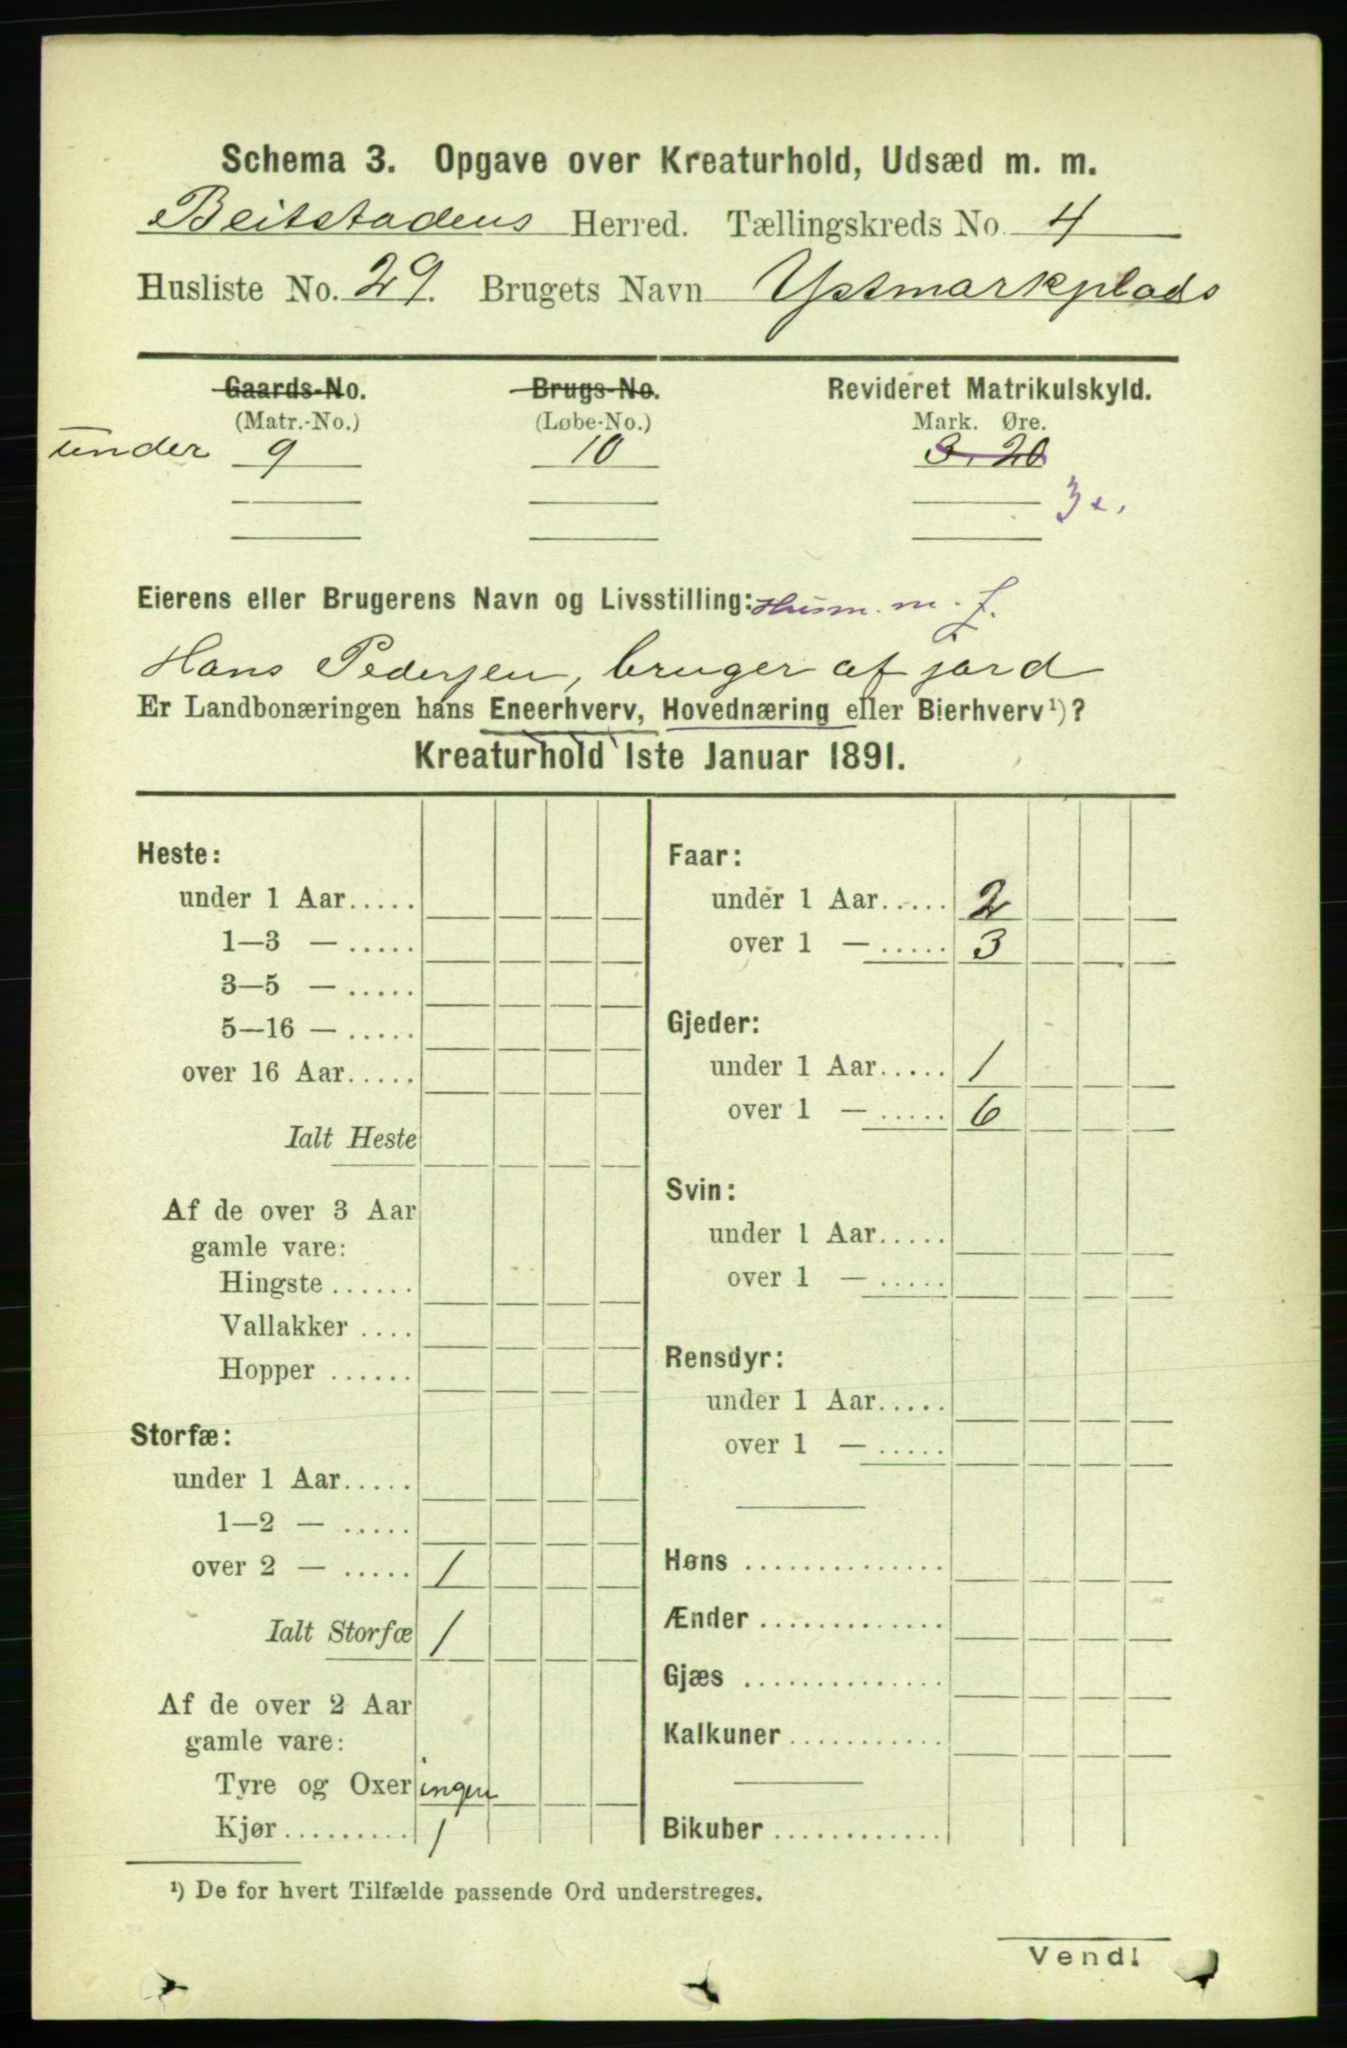 Schema 3. Opgave over Kreaturhold, Udsæd m. m.
Beitstadens Herred. Tællingskreds No. 4
Husliste No. 29. Brugets Navn Ystmarkplads
Gaards-No. Brugs-No. Revideret Matrikulskyld.
(Matr.-No.) (Løbe-No.) Mark. Øre.
under 9 10 3, 20
Eierens eller Brugerens Navn og Livsstilling: Husm. m. j.
Hans Pedersen, bruger af jord
Er Landbonæringen hans Eneerhverv, Hovednæring eller Bierhverv¹)?
Kreaturhold 1ste Januar 1891.
Heste:
under 1 Aar.....
1—3 — .....
3—5 — .....
5—16 — .....
over 16 Aar.....
Ialt Heste
Af de over 3 Aar
gamle vare:
Hingste ......
Vallakker ....
Hopper ......
Storfæ:
under 1 Aar.....
1—2 — .....
over 2 — ..... 1
Ialt Storfæ 1
Af de over 2 Aar
gamle vare:
Tyre og Oxer ingen
Kjør.......... 1
Faar:
under 1 Aar..... 2
over 1 — ..... 3
Gjeder:
under 1 Aar..... 1
over 1 — ..... 6
Svin:
under 1 Aar.....
over 1 — .....
Rensdyr:
under 1 Aar.....
over 1 — .....
Høns ..............
Ænder .............
Gjæs ..............
Kalkuner...........
Bikuber ............
¹) De for hvert Tilfælde passende Ord understreges.
Vend!